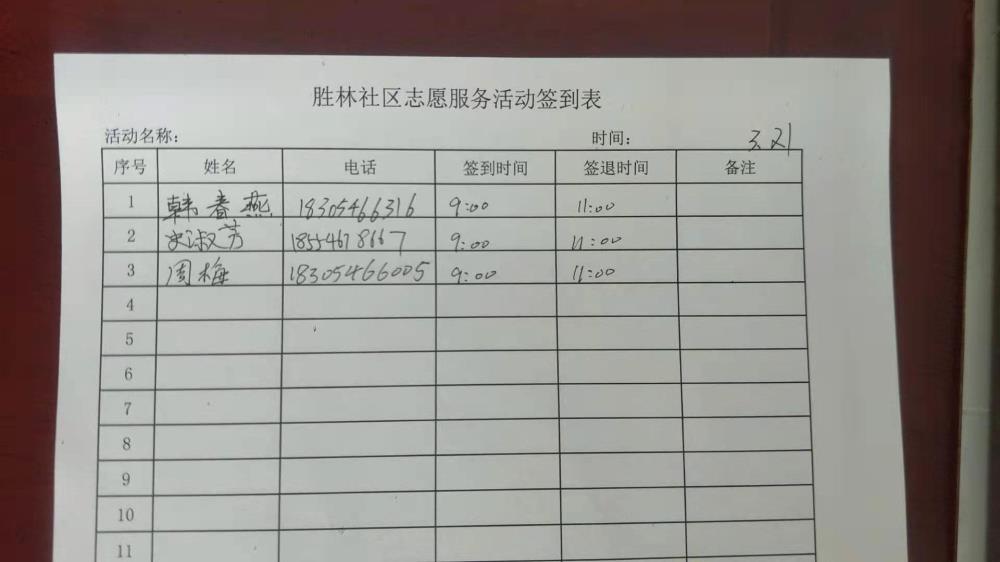 胜林社区志愿服务活动签到表
活动名称: 时间: 3.21
序号 姓名 电话 签到时间 签退时间 备注
1 韩春燕 18305466316 9:00 11:00
2 史淑芳 18554678667 9:00 11:00
3 周梅 18305466005 9:00 11:00
4
5
6
7
8
9
10
11